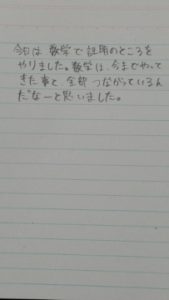 今日は数学で証明のところを
やりました。数学は、今までやって
きた事と、全部つながっているん
だなーと思いました。